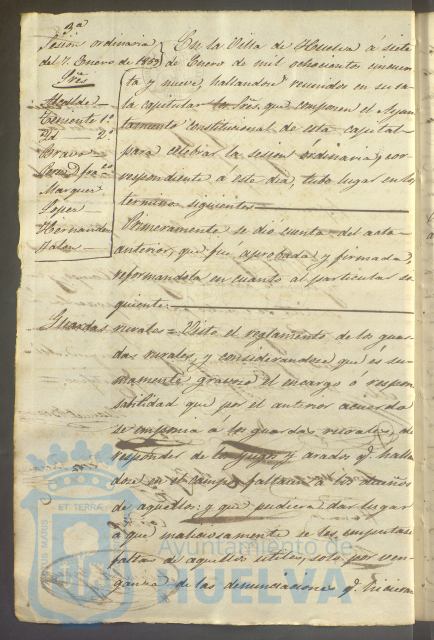 3ª
Sesión ordinaria
del 7. Enero de 1859
Sres
Alcalde
Teniente 1º
Yd 2º
Bravo
Marquez
Lopez
Hernandez
En la Villa de Huelva á siete
de Enero de mil ochocientos cincuen
ta y nueve, hallandose reunidos en su sa
la capitular los Sres. que componen el Ayun
tamiento constitucional de esta capital
para celebrar la sesion ordinaria, cor
respondiente á este dia, tubo lugar en los
terminos siguientes
Primeramente se dió cuenta del acta
anterior, que fué aprobada y firmada,
reformandola en cuanto al particular si
guiente.
Guardas rurales = Visto el reglamento de los guar
das rurales, y considerandose que es su
mamente gravoso el encargo ó respon
sabilidad que por el anterior acuerdo
se imponia a los guardas rurales, de
responder de los yugos y arados q. hallan
dose en el campo faltaren á los dueños
de aquellos; y que pudiera dar lugar
á que maliciosamente se les imputase
falta de aquellos utiles, solo por ven
ganza de las denunciaciones q. hicieran
Ayuntamiento de
HUELVA
ET TERRÆ
MARIS